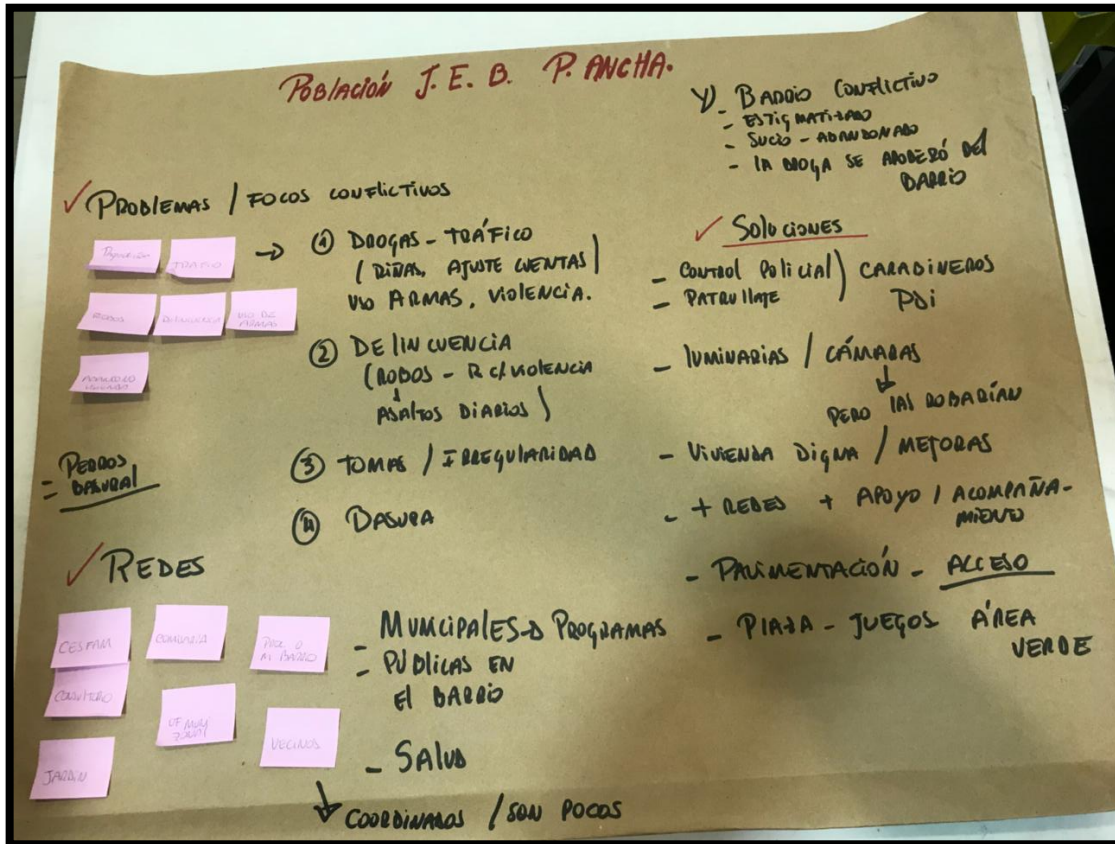 Población J. E. B. P. ANCHA.
- BARRIO CONFLICTIVO
- ESTIGMATIZADO
- SUCIO - ABANDONADO
- LA DROGA SE APODERÓ DEL
BARRIO
✓ PROBLEMAS / FOCOS CONFLICTIVOS
TRÁFICO
ROBOS
DELINCUENCIA
USO DE
ARMAS
ABANDONO
→ ① DROGAS - TRÁFICO
(RIÑAS, AJUSTE CUENTAS)
USO ARMAS, VIOLENCIA.
② DELINCUENCIA
(ROBOS - R c/VIOLENCIA
ASALTOS DIARIOS)
③ TOMAS / IRREGULARIDAD
④ BASURA
- PERROS
- BASURAL
✓ SOLUCIONES
- CONTROL POLICIAL) CARABINEROS
- PATRULLAJE PDI
- LUMINARIAS / CÁMARAS
↓
PERO LAS ROBARÍAN
- VIVIENDA DIGNA / MEJORAS
- + REDES + APOYO / ACOMPAÑA-
MIENTO
- PAVIMENTACIÓN - ACCESO
- PLAZA - JUEGOS ÁREA
VERDE
✓ REDES
CESFAM
COMISARIA
AL BARRIO
CONSULTORIO
VECINOS
JARDIN
- MUNICIPALES → PROGRAMAS
- PÚBLICAS EN
EL BARRIO
- SALUD
↓ COORDINADOS / SON POCOS